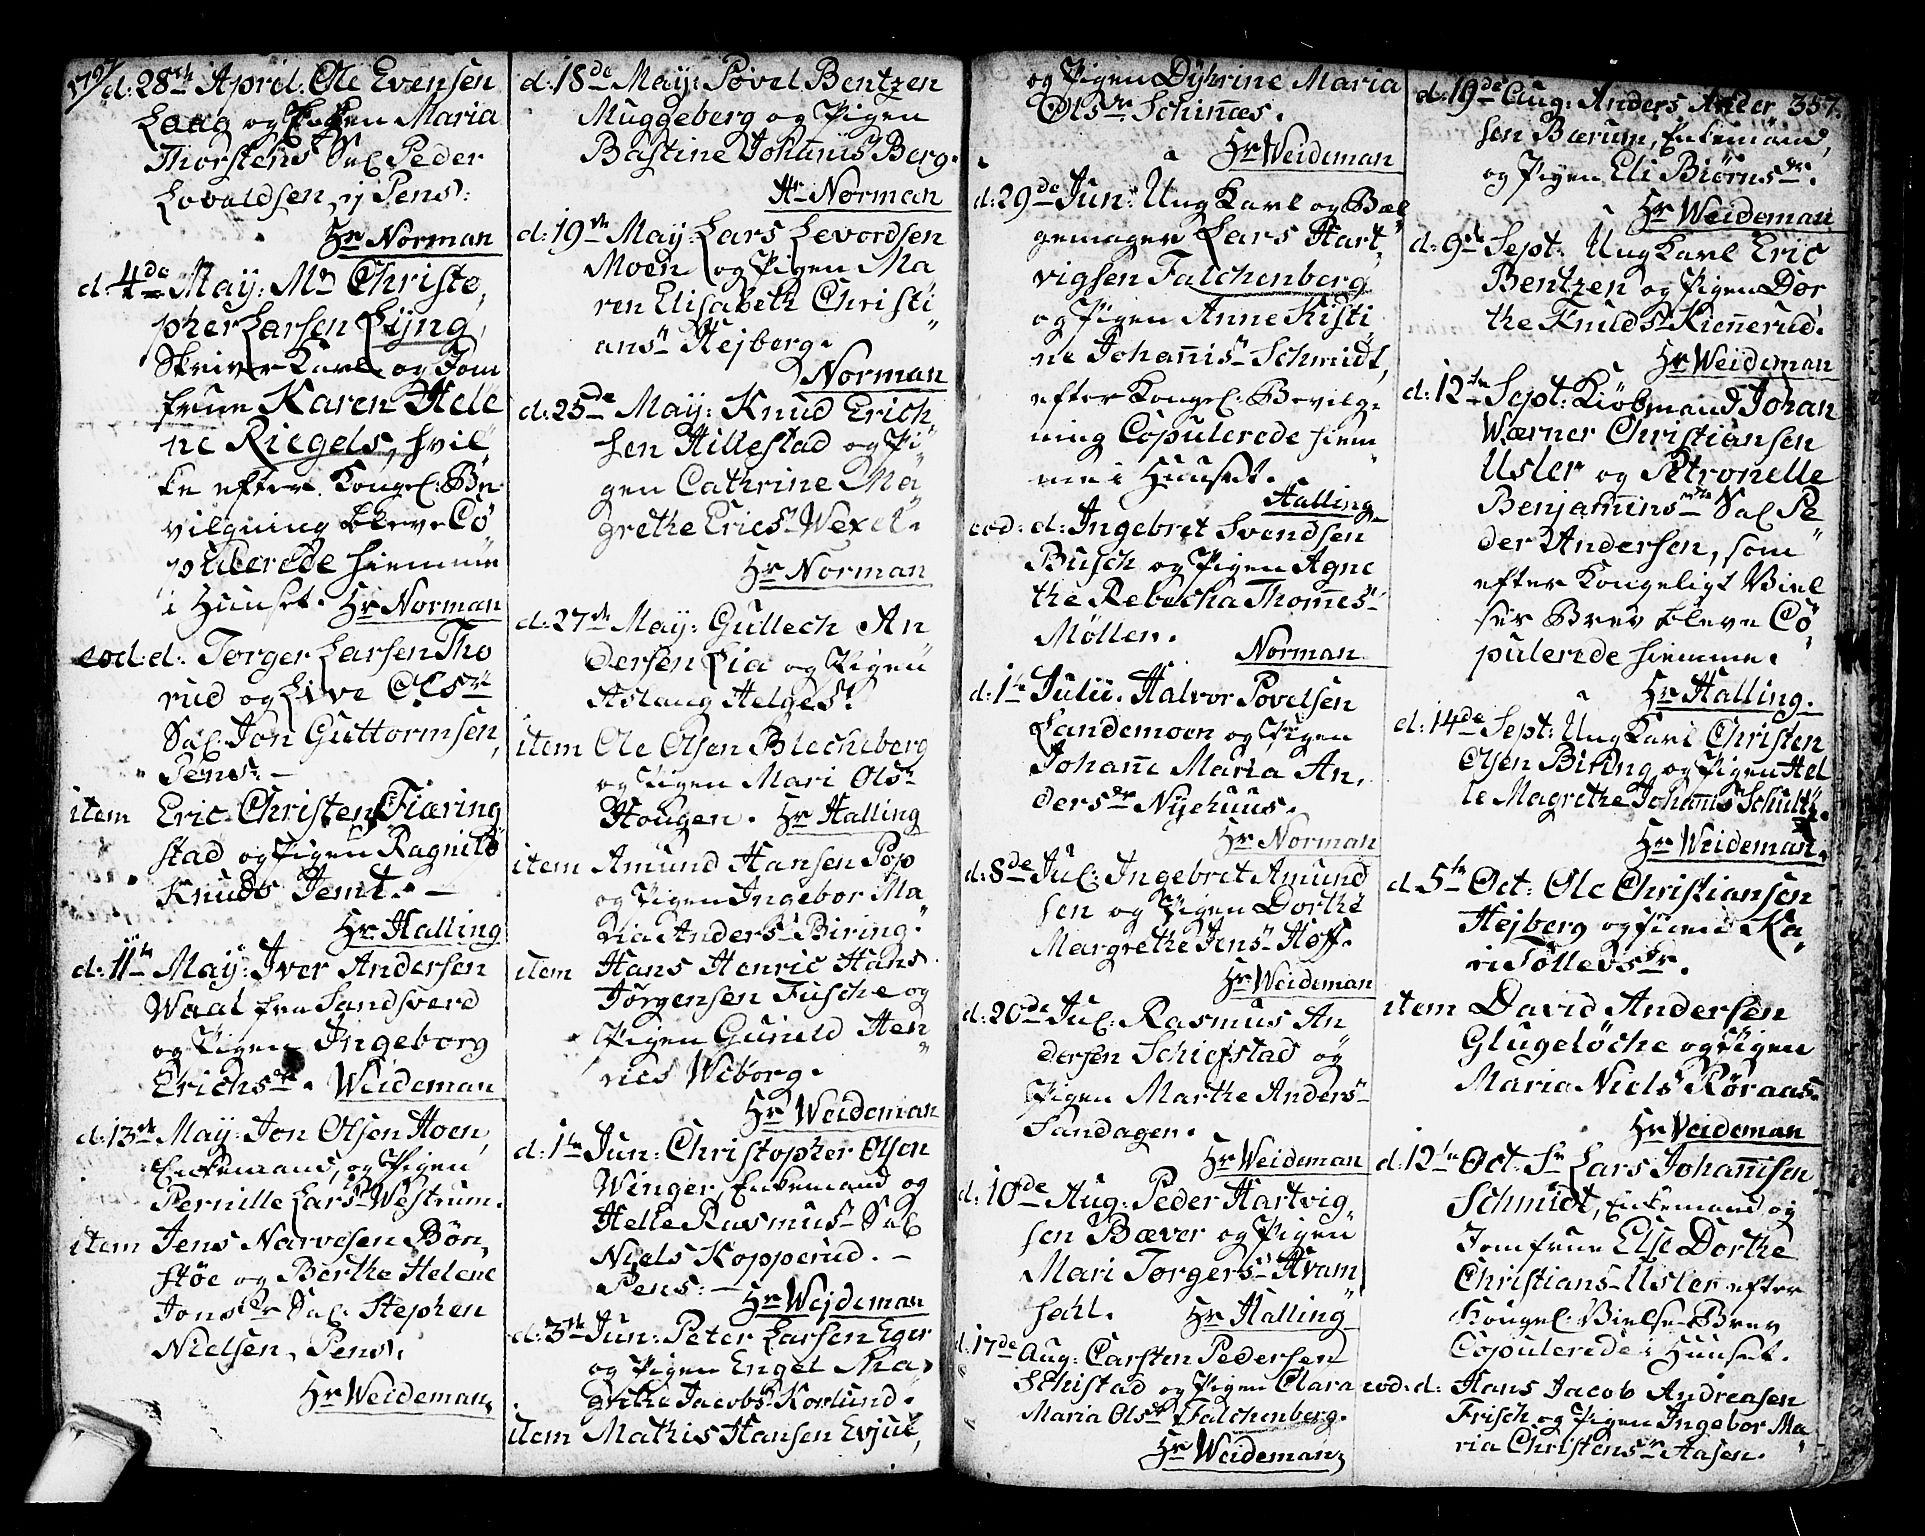 d: 28de April: Ole Evensen
Laag og Maria
Thorstens Sal Peder
Lovoldsen, ej Pens:
Hr Norman
d: 4de May: Mr Christo,
pher Larsen Lyng,
Skriver Karl og Jom
frue Karen Hele
ne Riegels, hvil
ke efter Kongel: Be
vilgning bleve Co
pulerede hiemme
i Huuset. Hr Norman
eod: d: Torger Larsen Tho
rud og Live Ols dr
Sal Jon Guttormsen,
Pens: -
item Eric Christen Fiæring
stad og Pigen Ragnild
Knuds Jemt. -
Hr Halling
d: 11te May: Iver Andersen
Waal fra Sandsverd
og Pigen Ingeborg
Erichs dr. Weideman
d: 13de May: Jon Olsen Hoen,
Enkemand, og Pigen
Pernille Lars Westrum.
item Jens Narvesen Bøn,
støe og Berthe Helene
Jons dr Sal: Stephen
Nielsen, Pens.
Hr Weideman,
d: 18de May: Povel Bentzen
Muggeberg og Pigen
Bastine Johannis Berg.
Hr Norman
d: 19de May: Lars Levordsen
Moen og Pigen Ma
ren Elisabeth Christi
ans Hejberg.
Norman
d: 25de May: Knud Erich,
sen Hillestad og Pi
gen Cathrine Ma
grethe Erics Wexel.
Hr Norman
d: 27de May: Gullech An
dersen Lia og Pigen
Aslaug Helges.
item Ole Olsen Blecheberg
og Pigen Mari Ols
Hougen. Hr Halling
item Amund Hansen Pop
og Pigen Ingebor Ma
ria Anders Biring.
item Hans Henric Hans
Jørgensen Fusche og
Pigen Gunild Hen
rics Wiborg.
Hr Weideman
d: 1te Jun: Christopher Olsen
Winger, Enkemand og
Helle Rasmus Sal
Niels Kopperud. -
Pens: - Hr Wejdeman
d: 3de Jun: Peter Larsen Eger
og Pigen Engel Ma
grethe Jacobs Korlund.
item Mathis Hansen Evjue,
og Pigen Dyhrine Maria
Ols dr Schinnes.
Hr Weideman
d: 29de Jun: Ung Karl og Bæl
gemager Lars Hart,
vigsen Falchenberg
og Pigen Anne Kisti
ne Johannis Schmidt,
efter Kongel: Bevilg
ning Copulerede hiem
me i Huuset.
Halling
eod: d: Ingebret Svendsen
Busch og Pigen Agne
the Rebecha Thommes
Møller.
Norman
d: 1te Julii. Halvor Povelsen
Landemoen og Pigen
Johanne Maria An,
ders dr Nyehuus.
Hr Norman
d: 8de Jul: Ingebret Amund
sen og Pigen Dorthe
Margrethe Jens Hoff.
Hr Weideman
d: 20de Jul: Rasmus An
dersen Schiefstad og
Pigen Marthe Anders
Sandager.
Hr Weideman
d: 10de Aug: Peder Hartvig,
sen Bæver og Pigen
Mari Torgers Kvam
sahl. Hr Halling
d: 17de Aug: Carsten Pedersen
Schistad og Pigen Clara
Maria Ols dr Falchenberg.
Hr Weideman,
d: 19de Aug: Anders Ander 357.
sen Bærum, Enkemand,
og Pigen Eli Biørns dr.
Hr Weideman
d: 9de Sept: Ung Karl Eric
Bentzen og Pigen Dor
the Knuds Kiennerud.
Hr Weideman
d: 12te Sept: Kiøbmand Johan
Wærner Christiansen
Usler og Petronelle
Benjamins Sal Pe
der Andersen, som
efter Kongeligt Viel
ses Brev bleve Co
pulerede hiemme.
Hr Halling.
d: 14de Sept: Ung Karl Christen
Olsen Biring og Pigen Hel
le Magrethe Johannis Schultz.
Hr Weideman.
d: 5te Oct: Ole Christiansen
Hejberg og Pigen Ka
ri Tollevs dr.
item David Andersen
Glugeløche og Pigen
Maria Niels Røraas.
Hr Veideman
d: 12te Oct: Sr Lars Johannisen
Schmidt, Enkemand og
Jomfrue Else Dorthe
Christians Usler efter
Kongel: Vielse Brev
Copulerede i Huuset.
eod: d: Hans Jacob Andreasen
Frisch og Pigen Ingebor Ma
ria Christens Aasen.